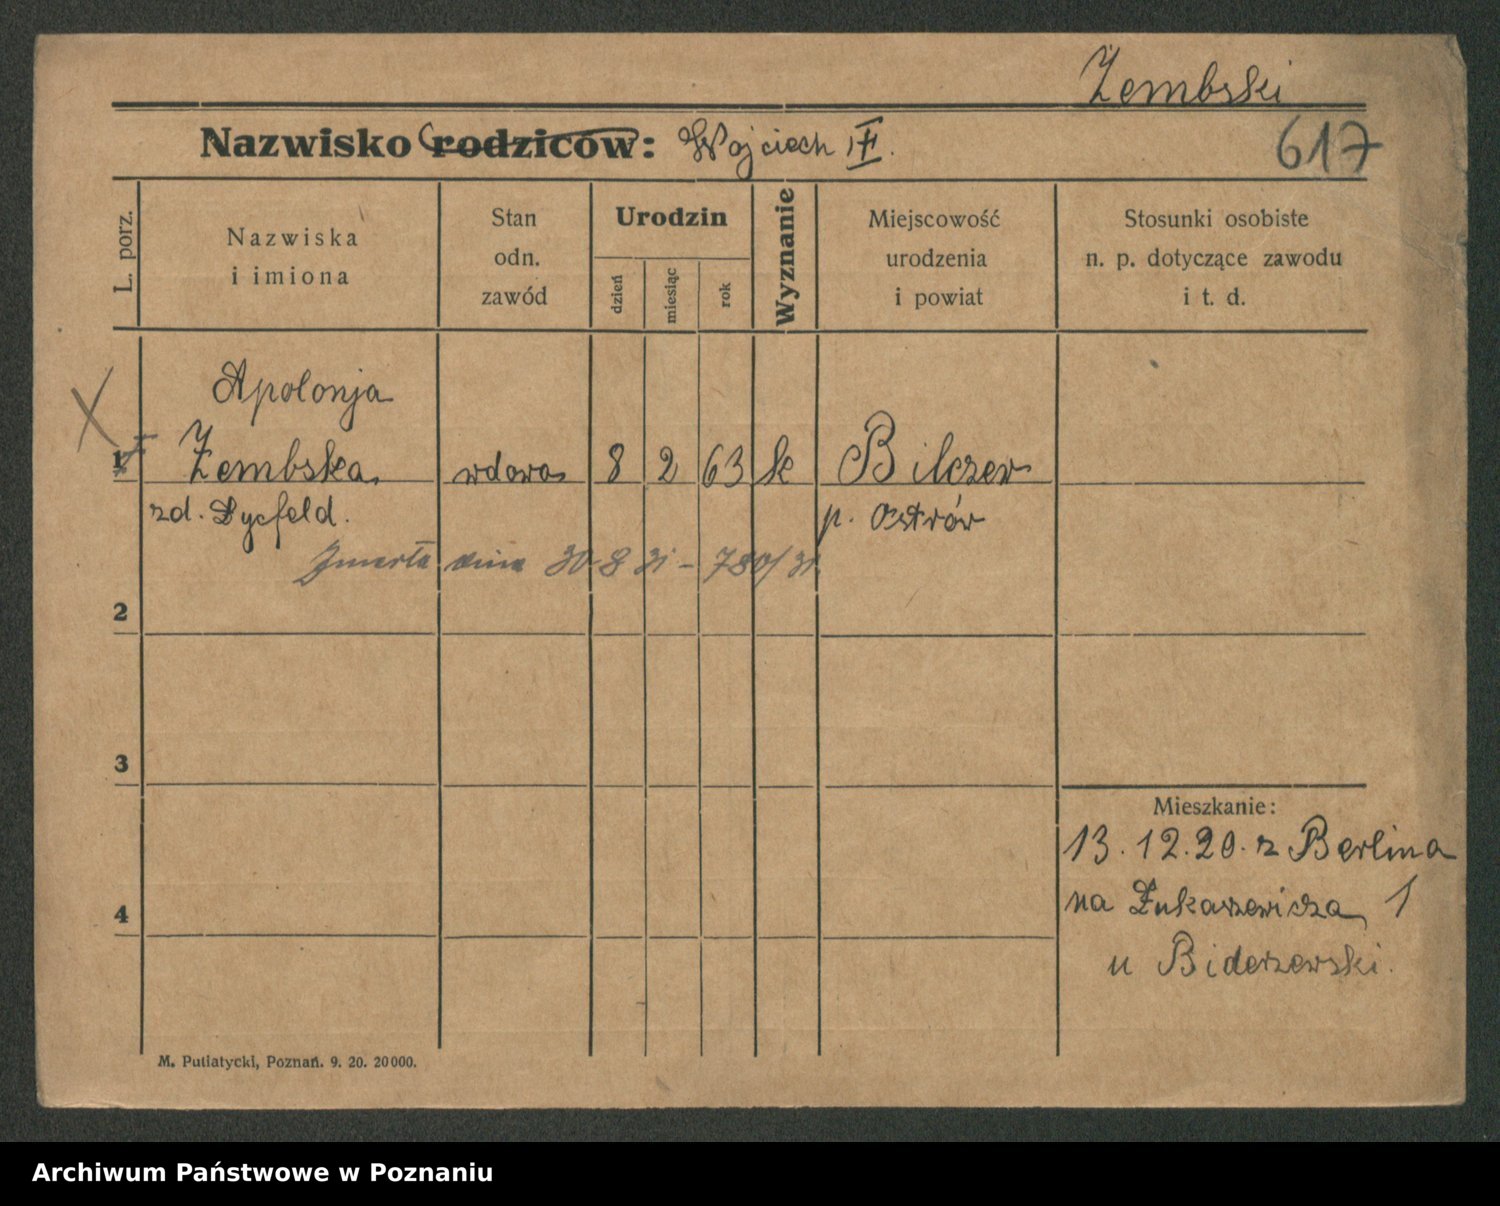 Żembski
Nazwisko rodziców: Wojciech
617
L. porz.
Nazwiska
i imiona
Stan
odn.
zawód
Urodzin
dzień
miesiąc
rok
Wyznanie
Miejscowość
urodzenia
i powiat
Stosunki osobiste
n. p. dotyczące zawodu
i t. d.
Apolonja
1 Żembska wdowa 8 2 63 k Bilczew
zd. Dycfeld. p. Ostrów
Zmarła dnia 30 8 31 - 780/31.
2
3
Mieszkanie:
13.12.20. z Berlina
na Łukaszewicza 1
4
u Biderzewski.
M. Putiatycki, Poznań. 9. 20. 20000.
Archiwum Państwowe w Poznaniu